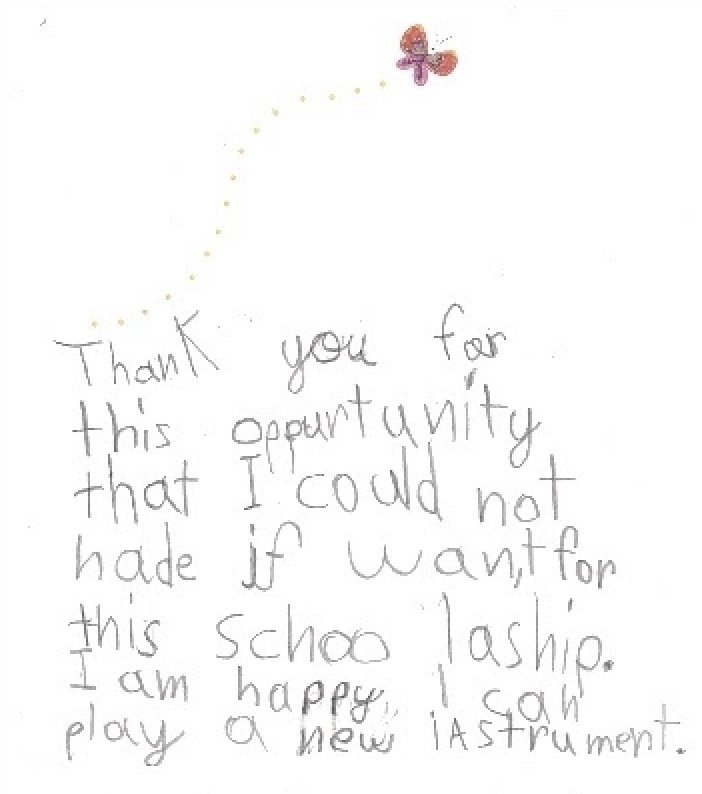 Thank you for
this oppurtunity
that I could not
hade if wan,t for
this schoo laship.
I am happy, I can
play a new instrument.